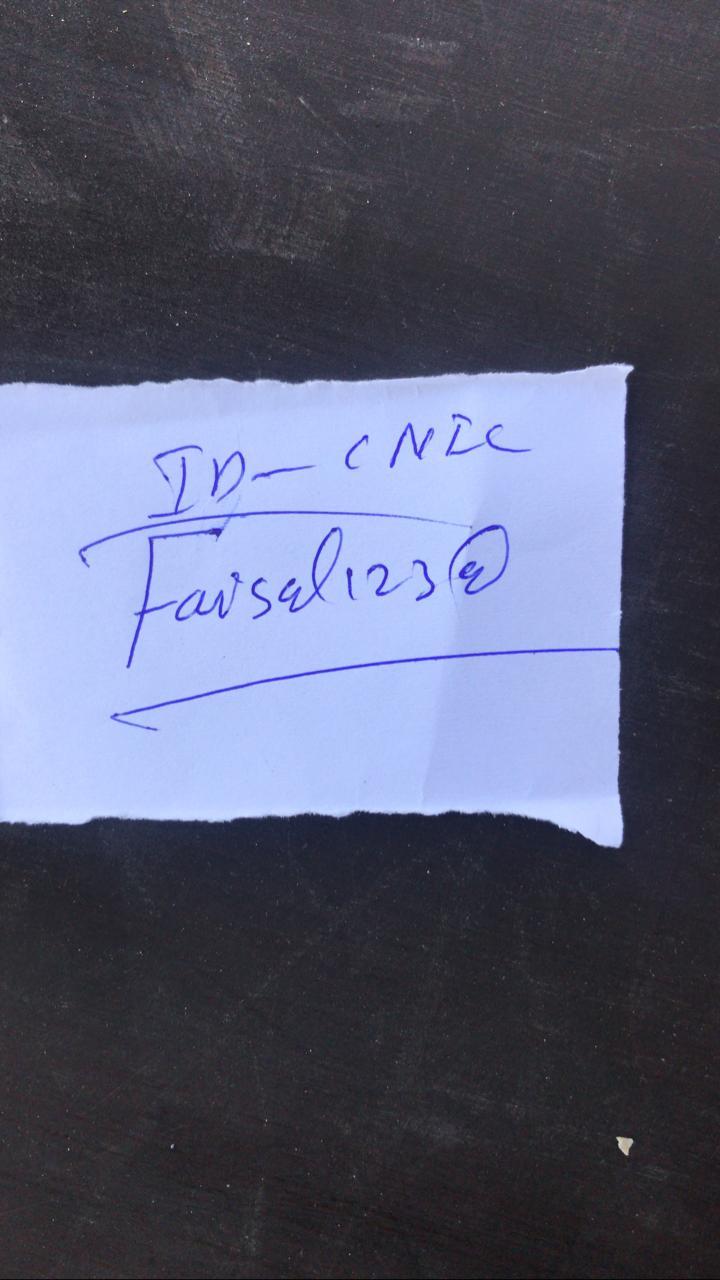 ID - CNIC
Faisal123@